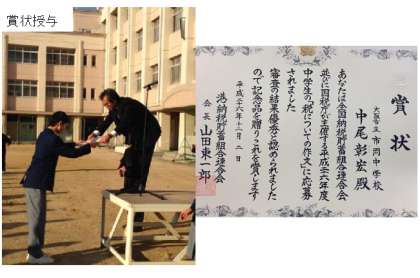 賞状授与
賞状
大阪市立市岡中学校
中尾彰宏殿
あなたは全国納税貯蓄組合連合会
並びに国税庁が主催する平成二六年度
中学生の「税についての作文」に応募
されました
審査の結果優秀と認められました
ので記念品を贈りこれを賞します
平成二六年十一月二日
港納税貯蓄組合連合会
会長 山田東一郎